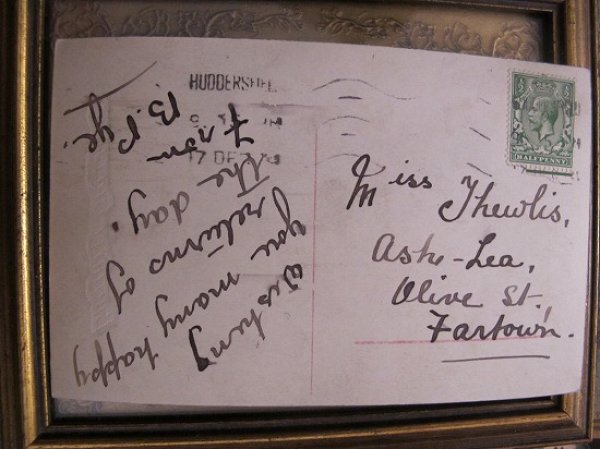 HUDDERSFIEL
17 DE
Wishing
you many happy
returns of
the day.
From
B. Pye.
HALFPENNY
Miss Thewlis,
Ash-Lea,
Olive St.,
Fartown.